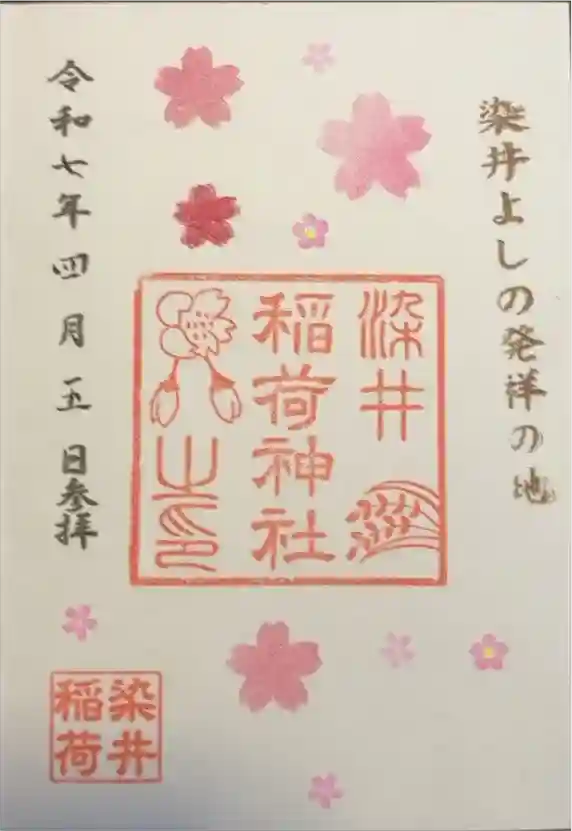 染井よしの発祥の地
染井
稲荷神社
之印
令和七年四月五日参拝
染井
稲荷